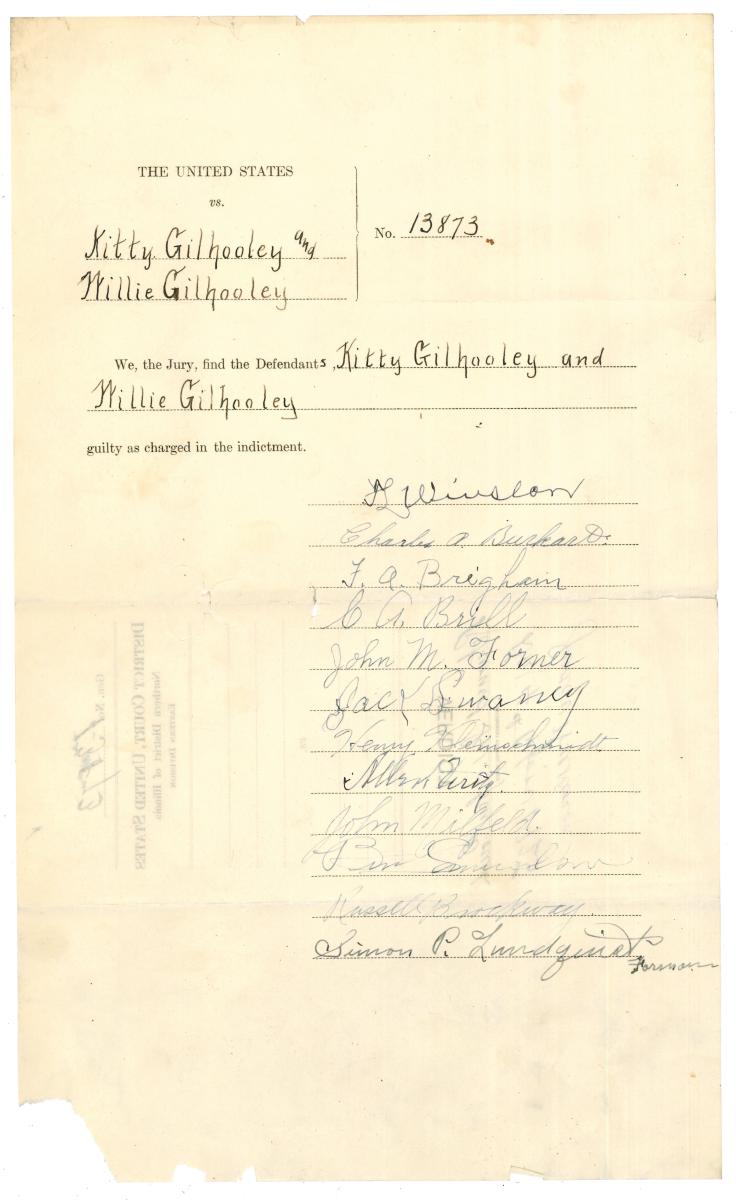 THE UNITED STATES
vs.
Kitty Gilhooley and
Willie Gilhooley
No. 13873
We, the Jury, find the Defendants, Kitty Gilhooley and
Willie Gilhooley
guilty as charged in the indictment.
Winslow
Charles A. Burkardt
F. A. Brigham
C A. Brill
John M. Forner
Jack Swaney
Henry Kleinschmidt
Allen
John Milfeld.
Ben
Russell Brockway.
Simon P. Lundquist
Forman
DISTRICT COURT, UNITED STATES
Northern District of Illinois
Eastern Division
Gen. No. 13873